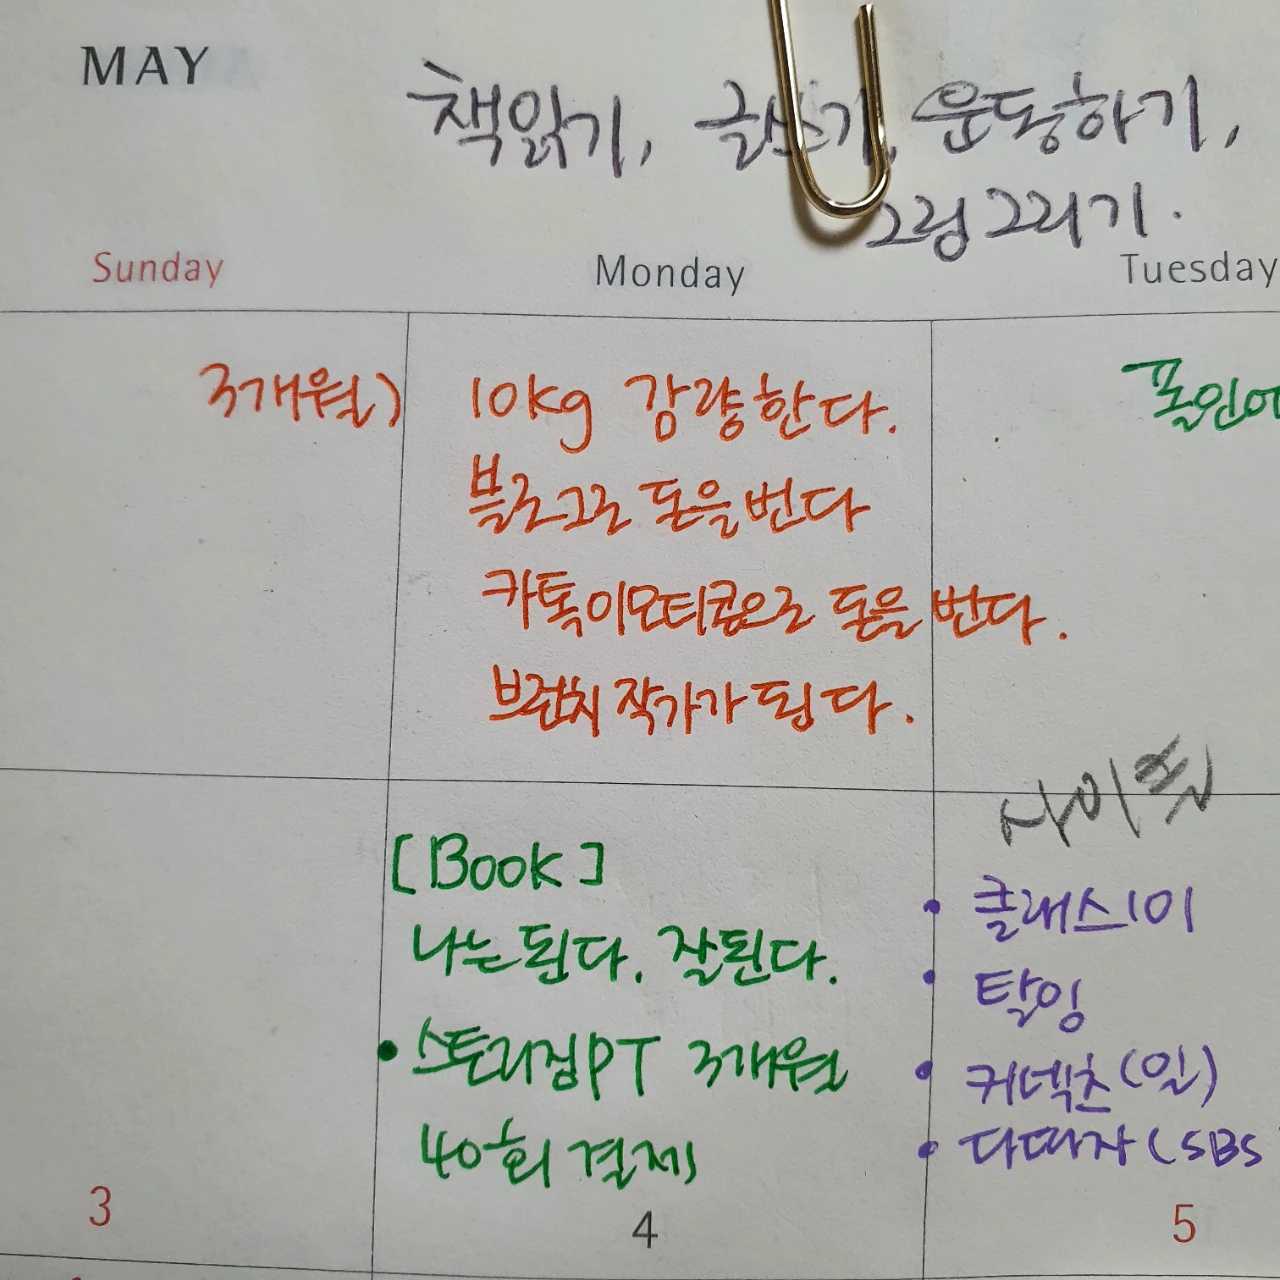 MAY
책읽기, 글쓰기, 운동하기,
그림그리기.
Sunday Monday Tuesday
3개월) 10kg 감량한다.
블로그로 돈을번다
카톡이모티콘으로 돈을 번다.
브런치 작가가 된다.
폴인에
[Book]
나는된다. 잘된다.
• 스토리짐PT 3개월
40회 결제
사이트
• 클래스101
• 탈잉
• 커넥츠(일)
• 다따자(SBS
3 4 5